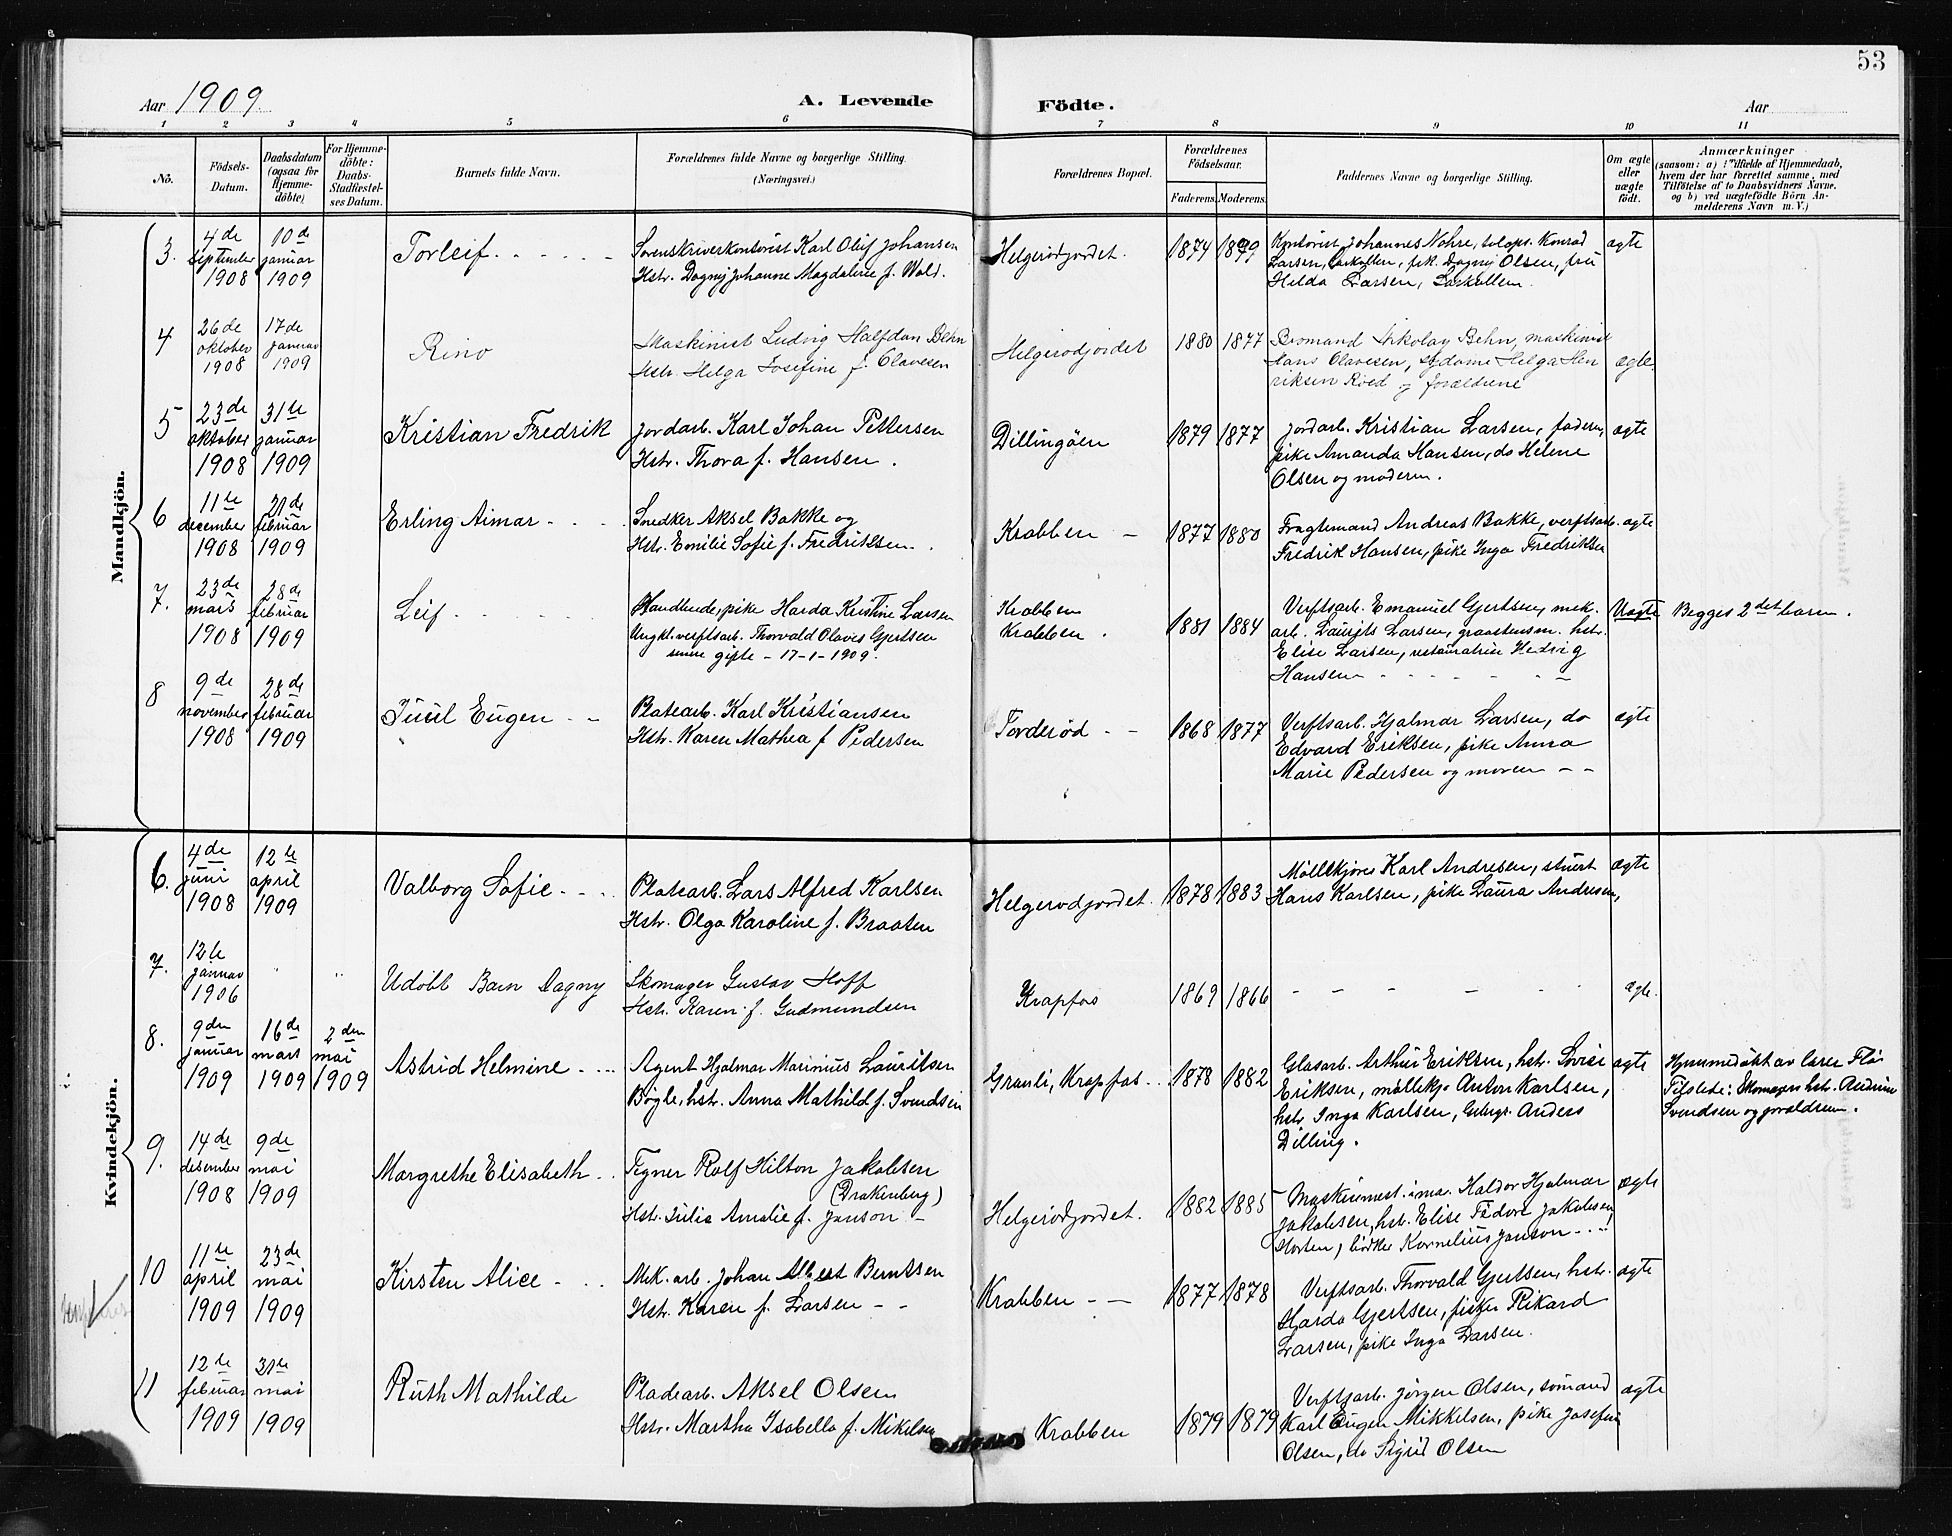 53
Aar 1909
A. Levende Födte.
Aar
1 2 3 4 5 6 7 8 9 10 11
No.
Födsels-
Datum.
Daabsdatum
(ogsaa for
Hjemme-
döbte)
For Hjemme-
döbte:
Daabs-
Stadfæstel-
ses Datum.
Barnets fulde Navn.
Forældrenes fulde Navne og borgerlige Stilling.
(Næringsvei.)
Forældrenes Bopæl.
Forældrenes
Födselsaar.
Faderens. Moderens.
Faddernes Navne og borgerlige Stilling.
Om ægte
eller
uægte
födt.
Anmærkninger
(saasom: a) i Tilfælde af Hjemmedaab,
hvem der har forrettet samme, med
Tilföielse af to Daabsvidners Navne,
og b) ved uægtefödte Börn An-
melderens Navn m. V.)
Mandkjön.
3.
4de
september
1908
10de
januar
1909
Torleif
Sorenskriverkontorist Karl Oluf Johansen
Hstr. Dagny Johanne Magdalene f. Wold.
Helgerødjordet.
1874
Kontorist Johannes Nohre, Konrad
Larsen, Larkollen, pik. Dagny Olsen, fru
Hilda Larsen, Larkollen.
ægte
4
26de
oktober
1908
17de
januar
1909
Rino
Maskinist Ludvig Halfdan Behn
Hstr. Helga Josefine f. Olavesen
Helgerodjordet
1880 1877
Bromand Nikolay Behn, maskinist
Hans Olavesen, sydame Helga Hen
riksen Röed og forældrene
ægte.
5
23de
oktober
1908
31te
januar
1909
Kristian Fredrik
Jordarb. Karl Johan Pettersen
Hstr. Thora f. Hansen.
Dillingöen
1879 1877
Jordarb. Kristian Larsen, faderen,
pike Amanda Hansen, do Helene
Olsen og moderen.
ægte
6
11te
december
1908
21de
februar
1909
Erling Aimar
Snedker Aksel Bakke og
Hstr. Emilie Sofie f. Fredriksen.
Krabben
1877 1880
Fragtemand Andreas Bakke, verftsarb.
Fredrik Hansen, pike Inga Fredriksen
ægte
7.
23de
mars
1908
28de
februar
1909
Leif
Handlende, pike Harda Kristine Larsen
Ungkl. verftsarb. Thorvald Olaves Gjertsen
senere gifte - 17-1-1909.
Krabben
Krabben.
1881 1884
Verftsarb. Emanuel Gjertsen, mek.
arb. Laurits Larsen, graastensm. hstr.
Elise Larsen, restauratrise Hedvig
Hansen
Uægte
Begges 2det barn.
8
9de
november
1908
28de
februar
1909
Juul Eugen
Platearb. Karl Kristiansen
Hstr. Karen Mathea f Pedersen
Torderød
1868 1877
Verftsarb. Hjalmar Larsen, do
Edvard Eriksen, pike Anna
Marie Pedersen og moren
ægte
Kvindekjön.
6.
4de
juni
1908
12te
april
1909
Valborg Sofie
Platearb. Lars Alfred Karlsen
Hstr. Olga Karoline f. Braaten
Helgerodjordet.
1878 1883
Møllekjører Karl Andresen, stuert
Hans Karlsen, pike Laura Andresen,
ægte
7.
12te
januar
1906
" "
Udöbt Barn Dagny
Skomager Gustav Hoff
Hstr. Karen f. Gudmundsen
Krapfos
1869 1866
ægte.
8.
9den
januar
1909
16de
mars
1909
2den
mai
1909
Astrid Helmine
Agent Hjalmar Marinius Lauritsen
Bøgle, hstr. Anna Mathild f. Svendsen
Granli, Krapfos
1878 1882
Glasarb. Arthur Eriksen, hst. Lovise
Eriksen, møllekj. Anton Karlsen,
hstr. Inga Karlsen, Anders
Dilling.
ægte
Hjemmedöbt av lærer Flör
Tilstede: Skomager hstr. Andrine
Svendsen og forældrene.
9.
14de
desember
1908
9de
mai
1909
Margrethe Elisabeth
Tegner Rolf Hilton Jakobsen
(Drakenberg)
Hstr. Julie Amalie f. Janson
Helgerödjordet.
1882 1885
Maskinmest. i ma. Haldor Hjalmar
Jakobsen, hstr. Elise Fedora Jakobsen,
Horten, bødker Kornelius Janson
ægte
10
11te
april
1909
23de
mai
1909
Kirsten Alice
Mek. arb. Johan Albert Berntsen
Hstr. Karen f. Larsen
Krabben
1877 1878
Verftsarb. Thorvald Gjertsen, hstr.
Harda Gjertsen, fisker Rikard
Larsen, pike Inga Larsen.
ægte
11
12te
februar
1909
31te
mai
1909
Ruth Mathilde
Pladearb. Aksel Olsen
Hstr. Martha Isabella f. Mikelsen
Krabben
1879 1879
Verftsarb. Jörgen Olsen, sömand
Karl Eugen Mikkelsen, pike Josefine
Olsen, do Sigrid Olsen
ægte